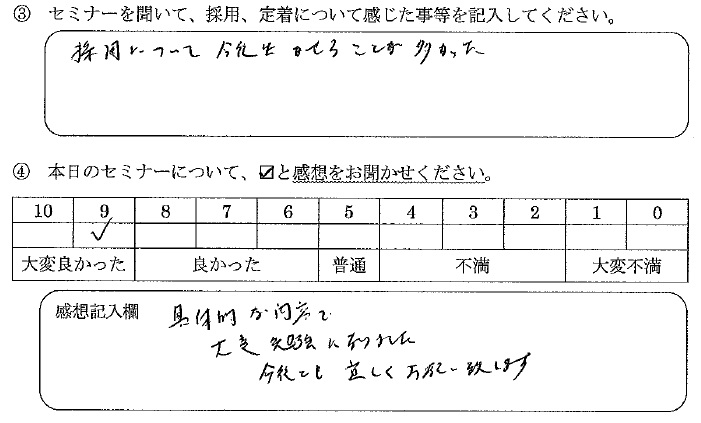 ③ セミナーを聞いて、採用、定着について感じた事等を記入してください。
採用について 今後生かせることが多かった
④ 本日のセミナーについて、☑と感想をお聞かせください。
10 9 8 7 6 5 4 3 2 1 0
✓
大変良かった 良かった 普通 不満 大変不満
感想記入欄 具体的な内容で
大変勉強になりました
今後とも宜しくお願い致します